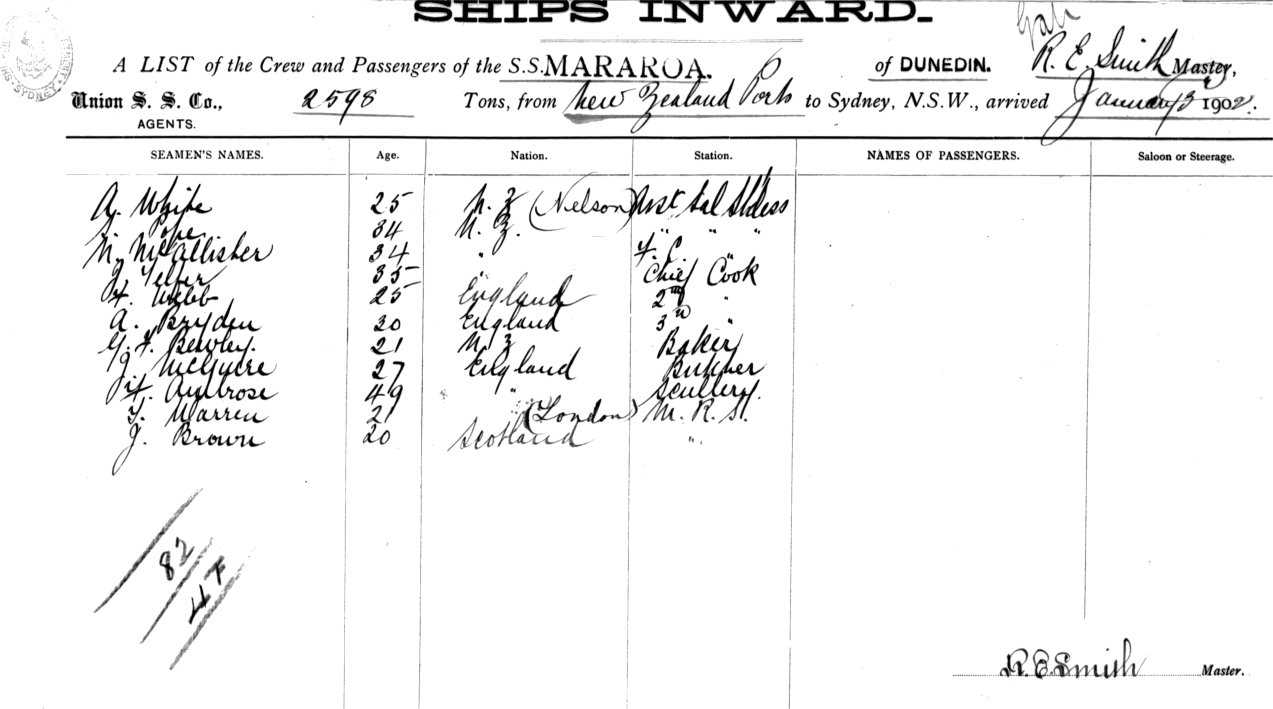 SHIPS INWARD.
A LIST of the Crew and Passengers of the S.S. MARAROA. of DUNEDIN. R. E. Smith Master,
Union S. S. Co., 2598 Tons, from New Zealand Ports to Sydney, N.S.W., arrived January 3 1902.
AGENTS.
SEAMEN'S NAMES. Age. Nation. Station. NAMES OF PASSENGERS. Saloon or Steerage.
A. White 25 N. Z (Nelson) Asst Sal Stdess
Pope 34 N. Z. " " "
N. McAllister 34 " F. C. "
J. Telfer 35 " Chief Cook
H. Webb 25 England 2nd "
A. Bryden 20 England 3rd "
G. F. Bewley. 21 N Z Baker
J. McGuire 27 England Butcher
H. Ambrose 49 " Scullery.
T. Warren 21 (London) M. R. S.
J. Brown 20 Scotland "
82
4 F
R. E. Smith Master.